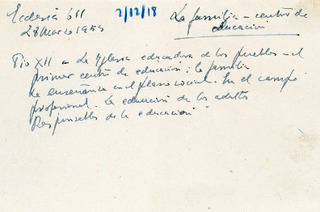 Ecclesia 611
7/12/18
La familia - centro de
educación
28 Marzo 1953
Pio XII - La Iglesia educadora de los pueblos - el
primer centro de educación: la familia
La enseñanza en el plano social. En el campo
profesional. La educación de los adultos
Responsables de la educación